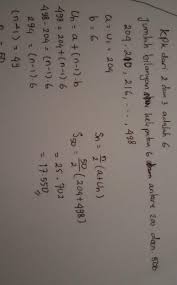 KPK dari 2 dan 3 adalah 6
Jumlah bilangan kelipatan 6 antara 200 dan 500
204, 210, 216, ..., 498
a = U₁ = 204
b = 6
Un = a + (n-1) b
498 = 204 + (n-1) 6
498 - 204 = (n-1) 6
294 = (n-1) 6
(n-1) = 49
Sn = n/2 (a + Un)
S50 = 50/2 (204 + 498)
= 25 . 702
= 17.550